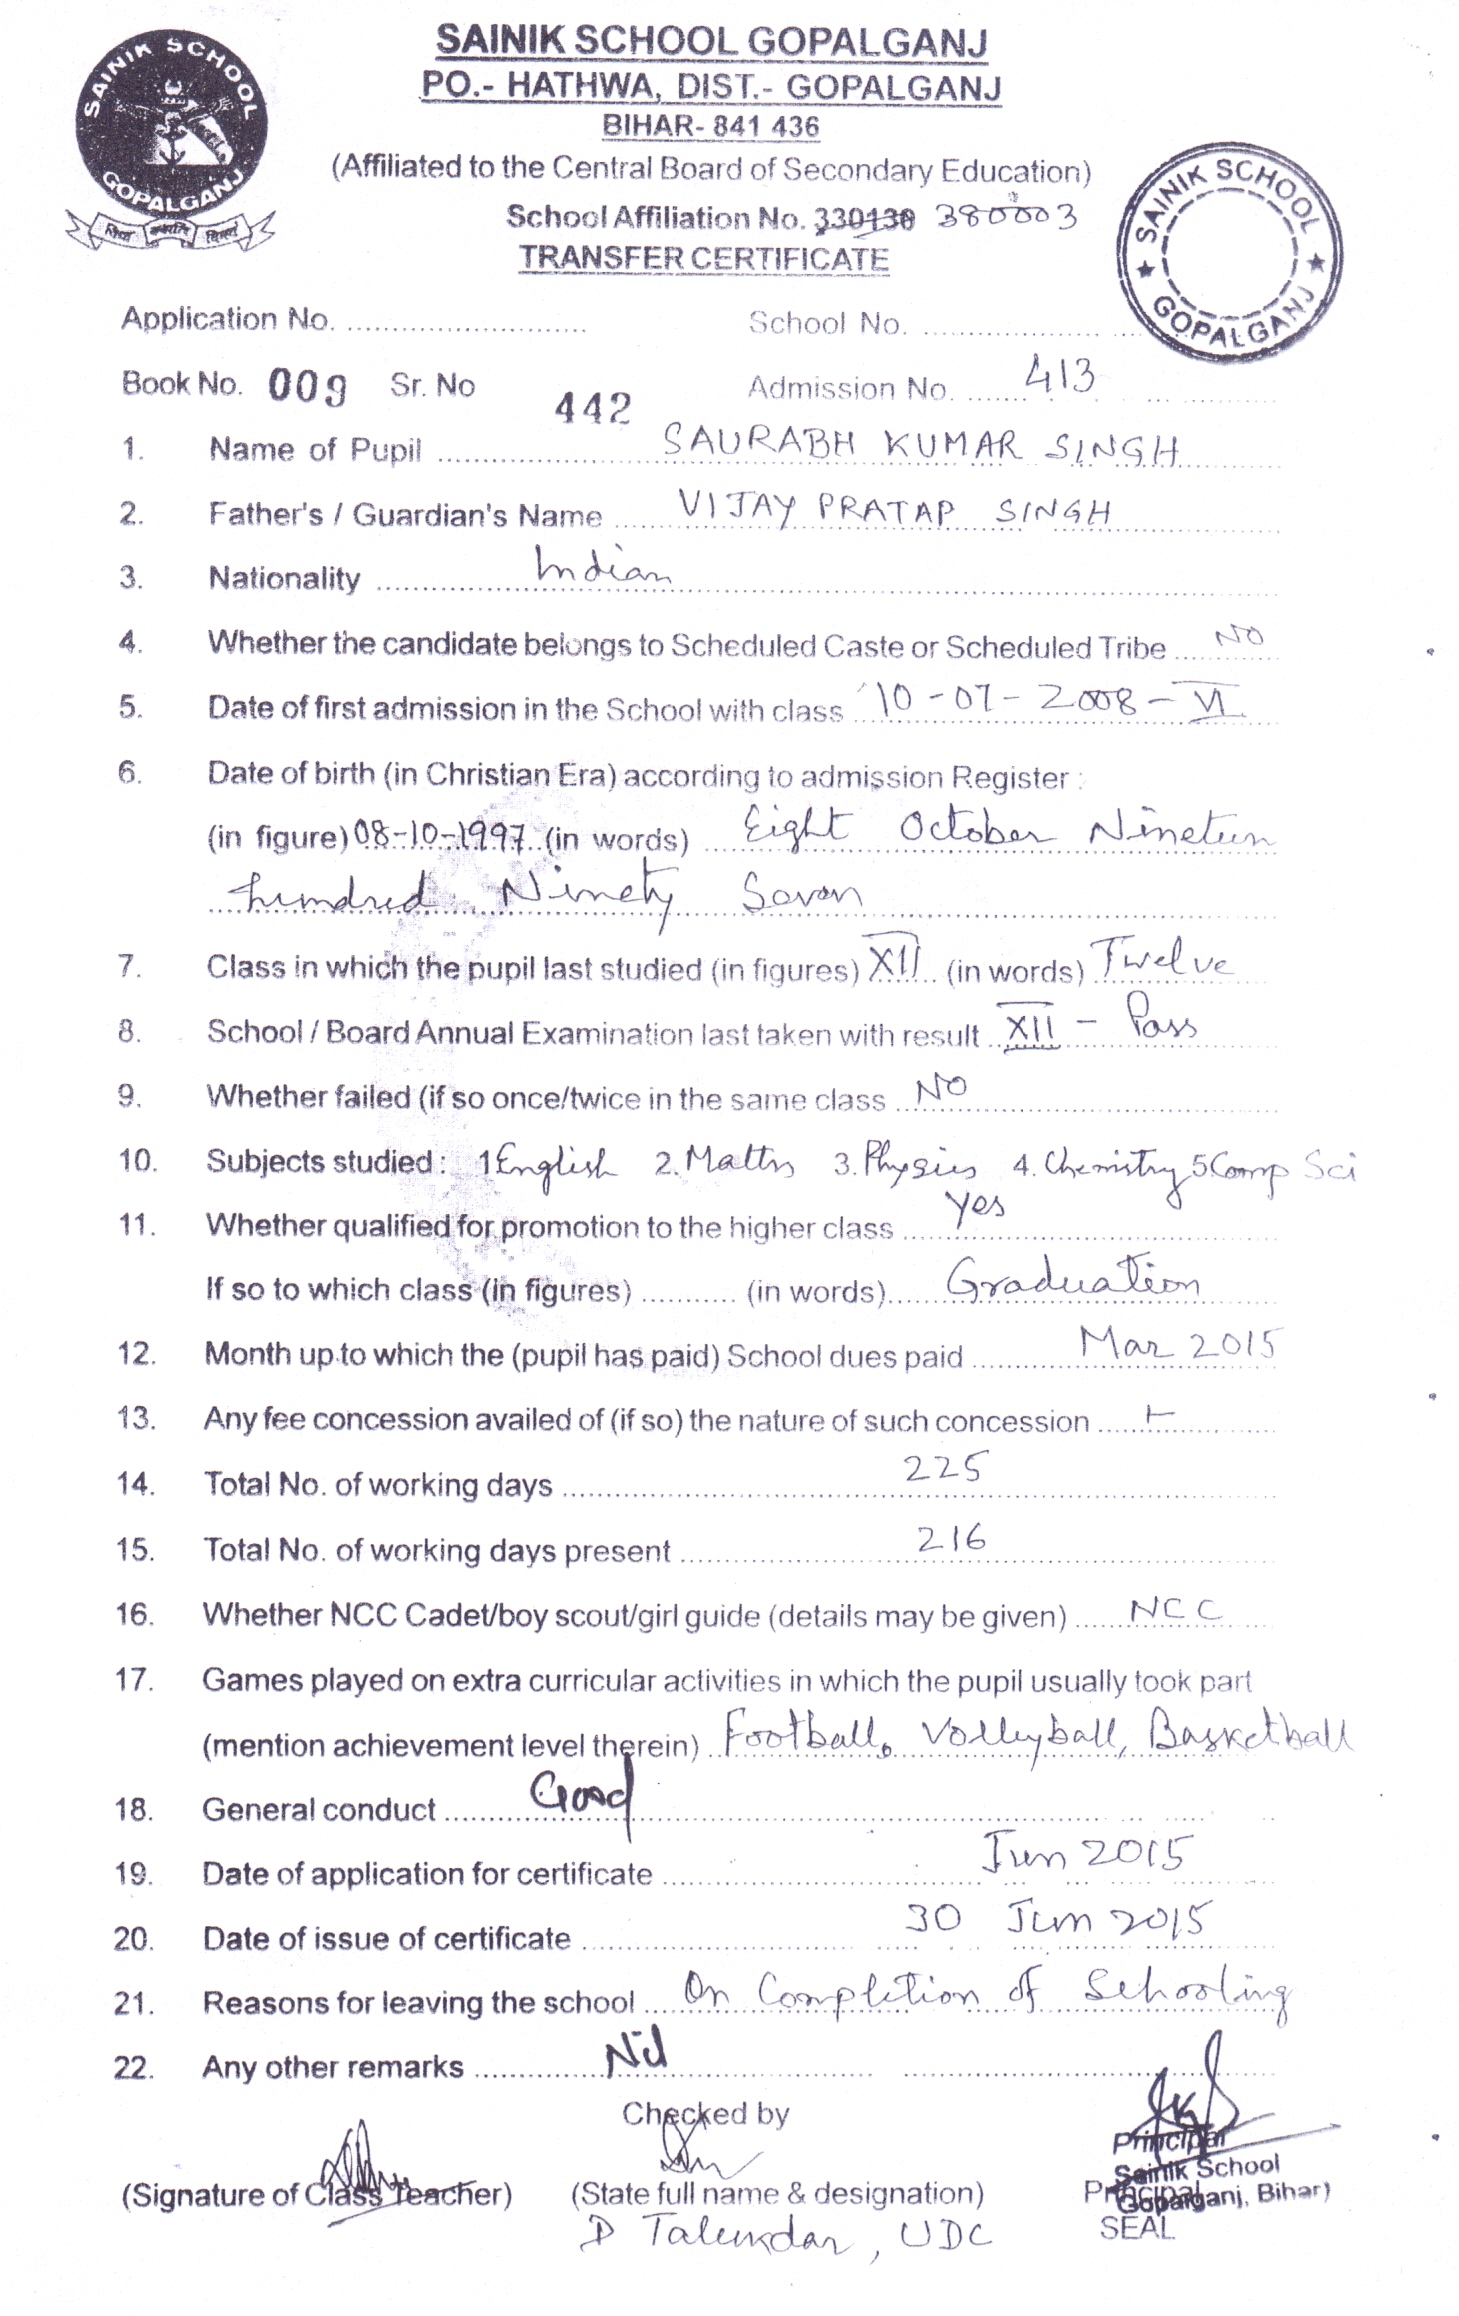 SAINIK SCHOOL GOPALGANJ
SAINIK SCHOOL GOPALGANJ
PO.- HATHWA, DIST.- GOPALGANJ
BIHAR- 841 436
(Affiliated to the Central Board of Secondary Education)
School Affiliation No. 330130 380003
TRANSFER CERTIFICATE
SAINIK SCHOOL ★ GOPALGANJ ★
Application No. School No.
Book No. 009 Sr. No 442 Admission No. 413
1. Name of Pupil SAURABH KUMAR SINGH
2. Father's / Guardian's Name VIJAY PRATAP SINGH
3. Nationality Indian
4. Whether the candidate belongs to Scheduled Caste or Scheduled Tribe NO
5. Date of first admission in the School with class 10-07-2008-VI
6. Date of birth (in Christian Era) according to admission Register :
(in figure) 08-10-1997 (in words) Eight October Nineteen
hundred Ninety Seven
7. Class in which the pupil last studied (in figures) XII (in words) Twelve
8. School / Board Annual Examination last taken with result XII - Pass
9. Whether failed (if so once/twice in the same class NO
10. Subjects studied : 1 English 2. Maths 3. Physics 4. Chemistry 5 Comp Sci
11. Whether qualified for promotion to the higher class Yes
If so to which class (in figures) (in words) Graduation
12. Month up to which the (pupil has paid) School dues paid Mar 2015
13. Any fee concession availed of (if so) the nature of such concession
14. Total No. of working days 225
15. Total No. of working days present 216
16. Whether NCC Cadet/boy scout/girl guide (details may be given) NCC
17. Games played on extra curricular activities in which the pupil usually took part
(mention achievement level therein) Football, Volleyball, Basketball
18. General conduct Good
19. Date of application for certificate Jun 2015
20. Date of issue of certificate 30 Jun 2015
21. Reasons for leaving the school On Completion of Schooling
22. Any other remarks Nil
Checked by
Principal
Sainik School
Gopalganj, Bihar)
(Signature of Class Teacher) (State full name & designation) Principal
D Talukdar, UDC SEAL